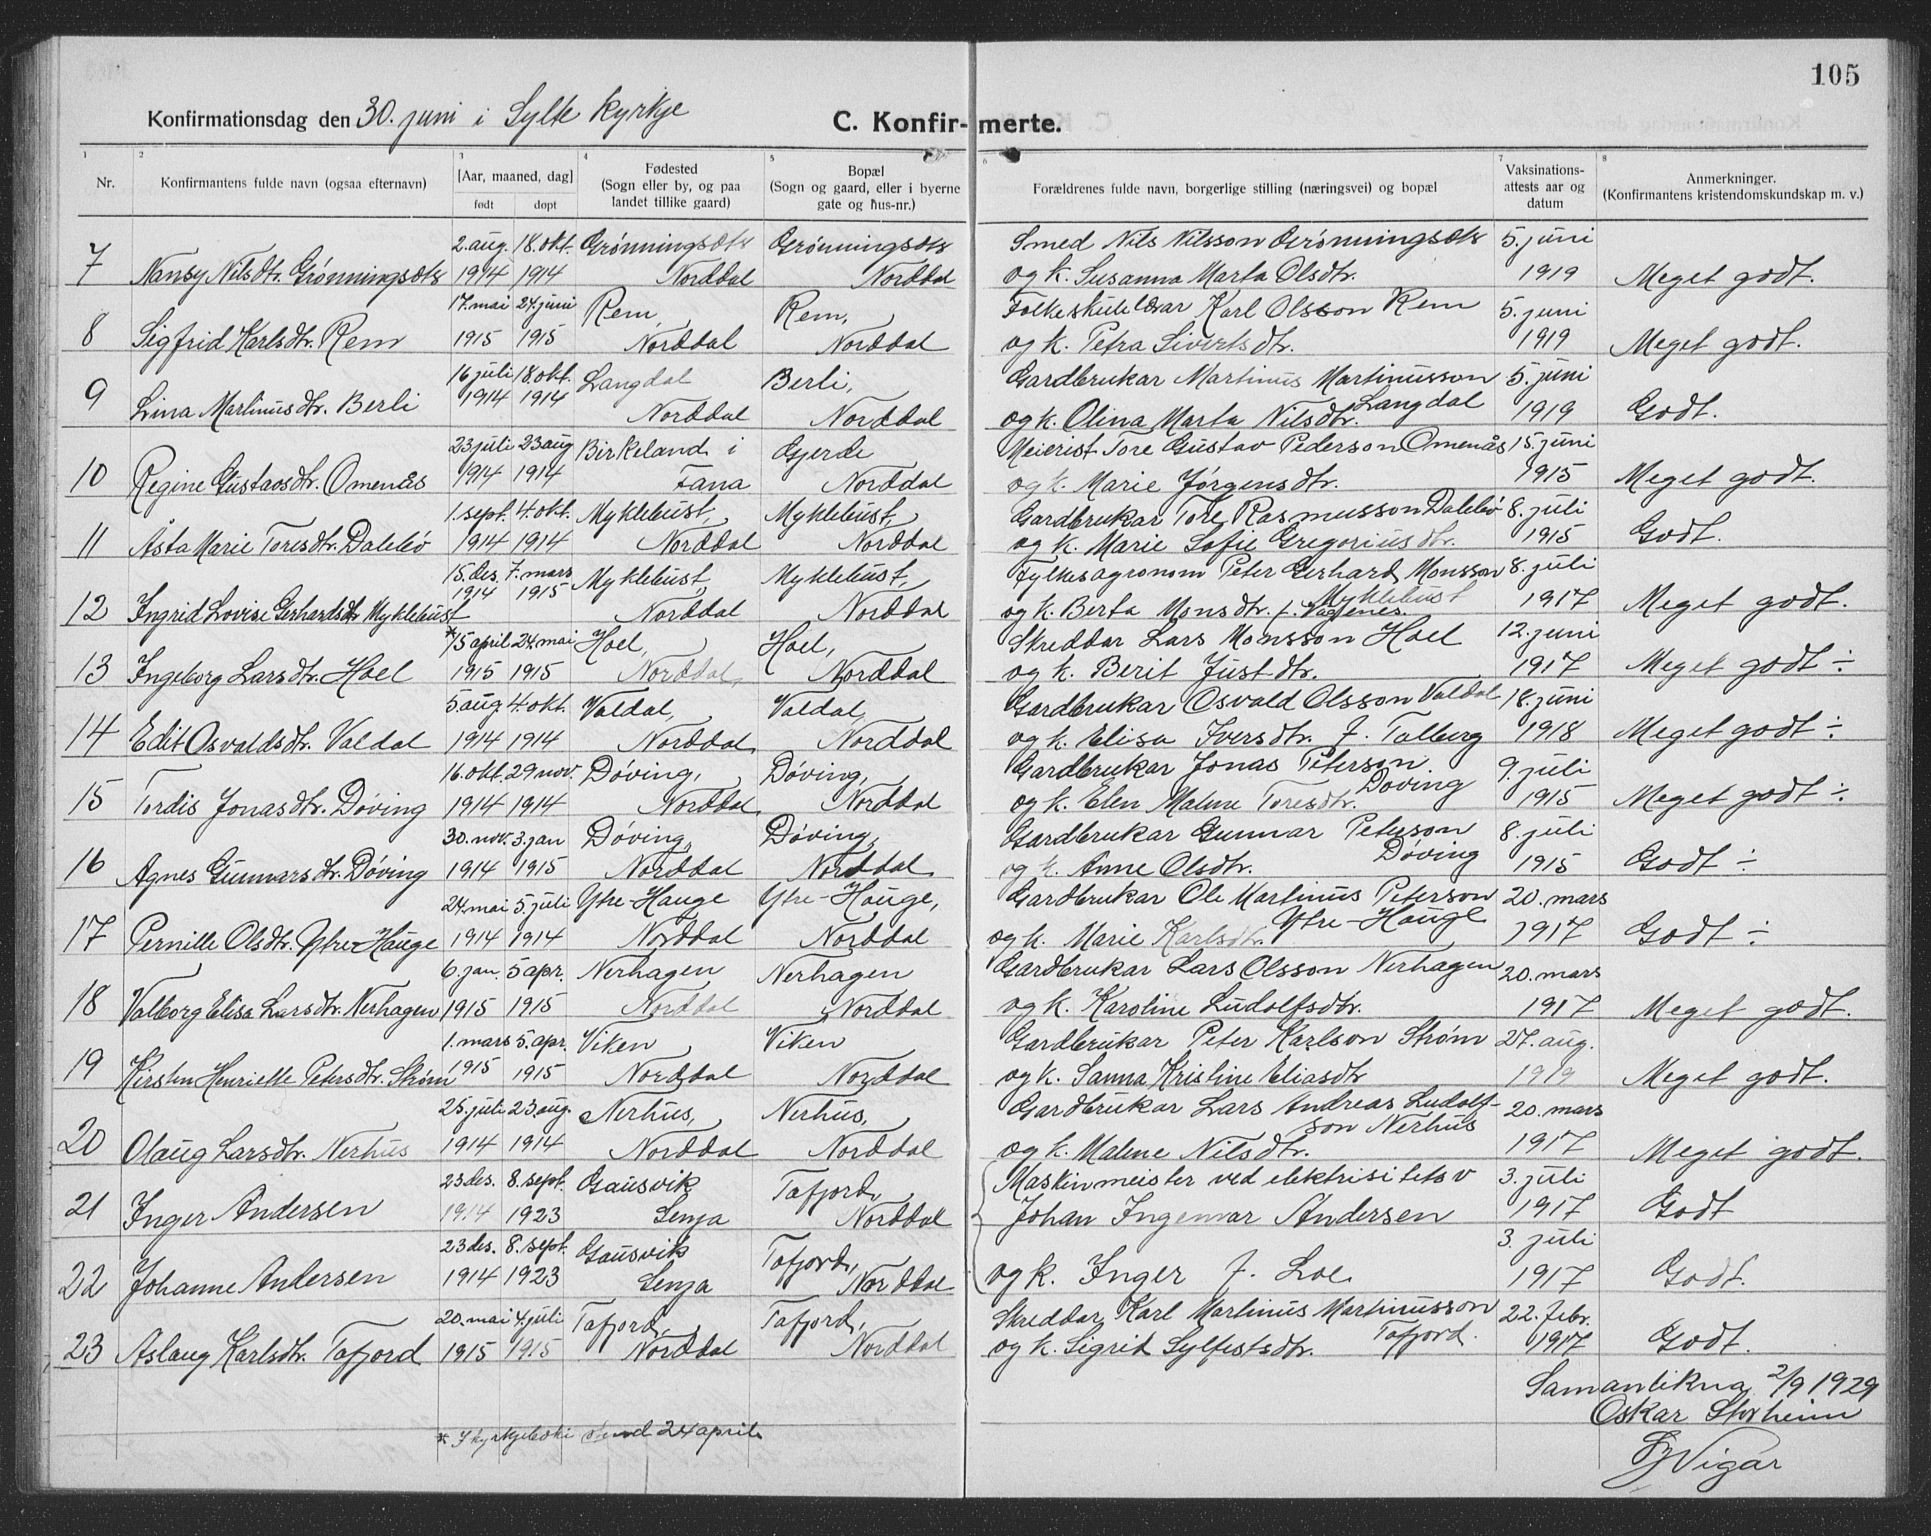 105
Konfirmationsdag den 30. juni i Sylte kyrkje
C. Konfir-merte.
1 2 3 4 5 6 7 8
Nr. Konfirmantens fulde navn (ogsaa efternavn) [Aar, maaned, dag] født døpt Fødested (Sogn eller by, og paa landet tillike gaard) Bopæl (Sogn og gaard, eller i byerne gate og hus-nr.) Forældrenes fulde navn, borgerlige stilling (næringsvei) og bopæl Vaksinations-attests aar og datum Anmerkninger. (Konfirmantens kristendomskundskap m. v.)
2. aug. 18. okt. Grønningsæter Grønningsæter Smed Nils Nilsson Grønningsæter 5. juni
7 Nansy Nilsdtr. Grønningsæter 1914 1914 Norddal Norddal og k. Susanna Marta Olsdtr. 1919 Meget godt.
17. mai 27. juni Rem, Rem, Folkeskulelærar Karl Olsson Rem 5. juni
8 Sigfrid Karlsdtr. Rem 1915 1915 Norddal Norddal og k. Petra Sivertsdtr. 1919 Meget godt.
16 juli 18. okt. Langdal Berli, Gardbrukar Martinus Martinusson 5. juni
9 Lina Martinusdtr. Berli 1914 1914 Norddal Norddal og k. Olina Marta Nilsdtr. Langdal 1919 Godt.
23 juli 23 aug Birkeland i Gjerde Meierist Tore Gustav Pederson Omenås 15. juni
10 Regine Gustavsdtr. Omenås 1914 1914 Fana Norddal og k. Marie Jørgensdtr. 1915 Meget godt.
1. sept. 4. okt. Myklebust, Myklebust, Gardbrukar Tore Rasmusson Dalebø 8. juli
11 Åsta Marie Toresdtr. Dalebø 1914 1914 Norddal Norddal og k. Marie Sofie Gregoriusdtr. 1915 Godt.
15. des. 7. mars Myklebust, Myklebust, Fylkesagronom Peter Gerhard Monsson 8. juli
12 Ingrid Lovise Gerhardsdtr Myklebust 1914 1915 Norddal Norddal Myklebust og k. Berta Monsdtr. f. Vagtenes. 1917 Meget godt.
*15 april 24. mai Hoel, Hoel, Skreddar Lars Monsson Hoel 12. juni
13 Ingeborg Larsdtr. Hoel 1915 1915 Norddal, Norddal og k. Berit Justdtr. 1917 Meget godt ÷
5 aug. 4. okt. Valdal, Valdal, Gardbrukar Osvald Olsson Valdal 18. juni
14 Edit Osvaldsdtr. Valdal 1914 1914 Norddal Norddal og k. Elisa Iversdtr. f. Talberg 1918 Meget godt ÷
16. okt. 29 nov. Døving, Døving, Gardbrukar Jonas Peterson 9. juli
15 Tordis Jonasdtr. Døving 1914 1914 Norddal Norddal og k. Elen Malene Toresdtr. Døving 1915 Meget godt ÷
30. nov. 3. jan Døving, Døving, Gardbrukar Gunnar Peterson 8. juli
16 Agnes Gunnarsdtr. Døving 1914 1915 Norddal Norddal og k. Anne Olsdtr. Døving 1915 Godt ÷
24. mai 5. juli Ytre-Hauge Ytre-Hauge, Gardbrukar Ole Martinus Peterson 20. mars
17 Pernille Olsdtr. Ytre-Hauge 1914 1914 Norddal Norddal og k. Marie Karlsdtr. Ytre-Hauge 1917 Godt ÷
6. jan. 5 apr. Nerhagen Nerhagen Gardbrukar Lars Olsson Nerhagen 20. mars
18 Valborg Elisa Larsdtr. Nerhagen 1915 1915 Norddal Norddal og k. Karoline Ludolfsdtr. 1917 Meget godt.
1. mars 5. apr. Viken Viken Gardbrukar Peter Karlson Strøm 27. aug.
19 Kirsten Henriette Petersdtr. Strøm 1915 1915 Norddal Norddal og k. Sanna Kristine Eliasdtr 1919 Meget godt.
25. juli 23. aug. Nerhus, Nerhus, Gardbrukar Lars Andreas Ludolf- 20. mars
20 Olaug Larsdtr. Nerhus 1914 1914 Norddal Norddal son Nerhus og k. Malene Nilsdtr. 1917 Meget godt.
23 des. 8. sept. Gausvik Tafjord, Maskinmeister ved elektrisitetsv 3. juli
21 Inger Andersen 1914 1923 Senja Norddal Johan Ingemar Andersen 1917 Godt
23 des. 8. sept. Gausvik Tafjord, 3. juli
22 Johanne Andersen 1914 1923 Senja Norddal og k. Inger f. Loe 1917 Godt.
20. mai 4. juli Tafjord, Tafjord, Skreddar Karl Martinus Martinusson 22. febr.
23 Aslaug Karlsdtr. Tafjord 1915 1915 Norddal Norddal og k. Sigrid Sylfestsdtr. Tafjord. 1917 Godt.
Samanlikna 2/9 1929
Oskar Storheim
* I kyrkjeboki 24 april.
Vigar